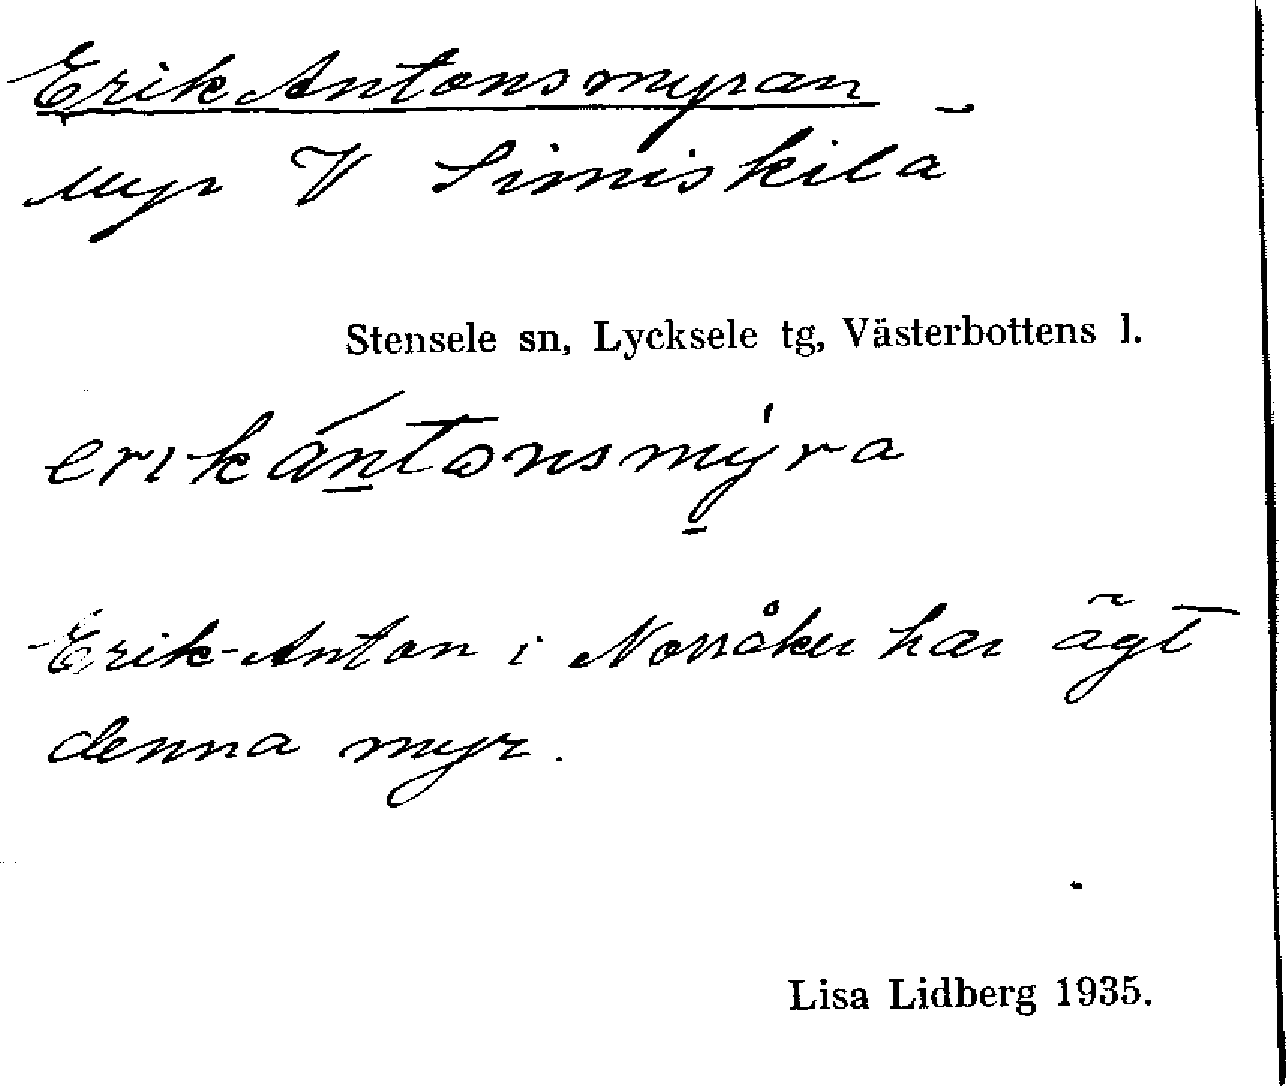 Erik Antonsmyran
myr V Simiskilä
Stensele sn, Lycksele tg, Västerbottens l.
erikántonsmýra
Erik-Anton i Norråker har ägt
denna myr.
Lisa Lidberg 1935.